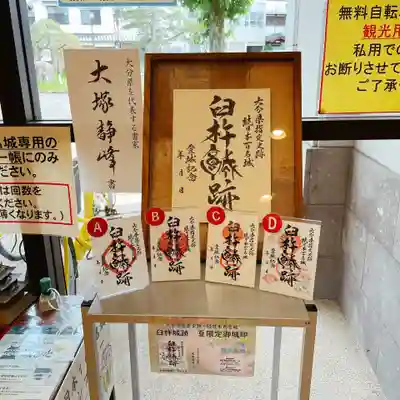 無料自転
観光用
私用での
お断りさせて
ご了承
大分県を代表する書家
大塚静峰 書
大分県指定史跡
続日本百名城
臼杵城跡
登城記念
年 月 日
城専用の
帳にのみ
ださい。
は回数を
薄くなります。)
A
臼杵城跡
B
臼杵城跡
C
臼杵城跡
D
臼杵城跡
臼杵城跡 夏限定御城印